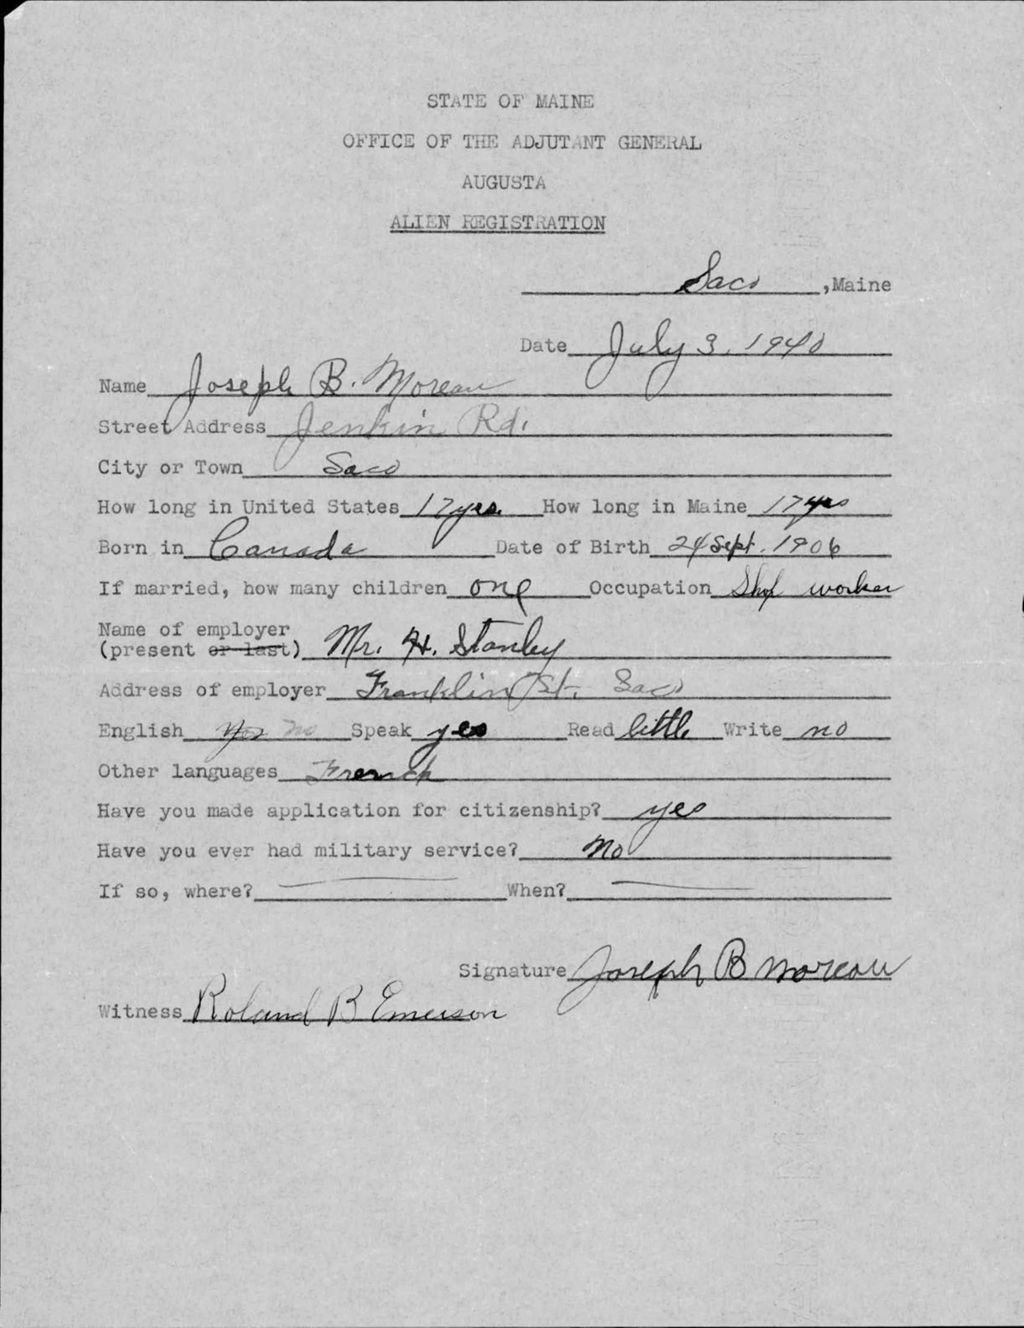 STATE OF MAINE
OFFICE OF THE ADJUTANT GENERAL
AUGUSTA
ALIEN REGISTRATION
Saco, Maine
Date July 3, 1940
Name Joseph B. Moreau
Street Address Jenkin Rd.
City or Town Saco
How long in United States 17 yrs. How long in Maine 17 yrs
Born in Canada Date of Birth 24 Sept. 1906
If married, how many children one Occupation worker
Name of employer
(present or last) Mr. H. Stanley
Address of employer Franklin St. Saco
English No Speak yes Read little Write no
Other languages French
Have you made application for citizenship? yes
Have you ever had military service? No
If so, where? When?
Signature Joseph B Moreau
Witness Roland B Emerson